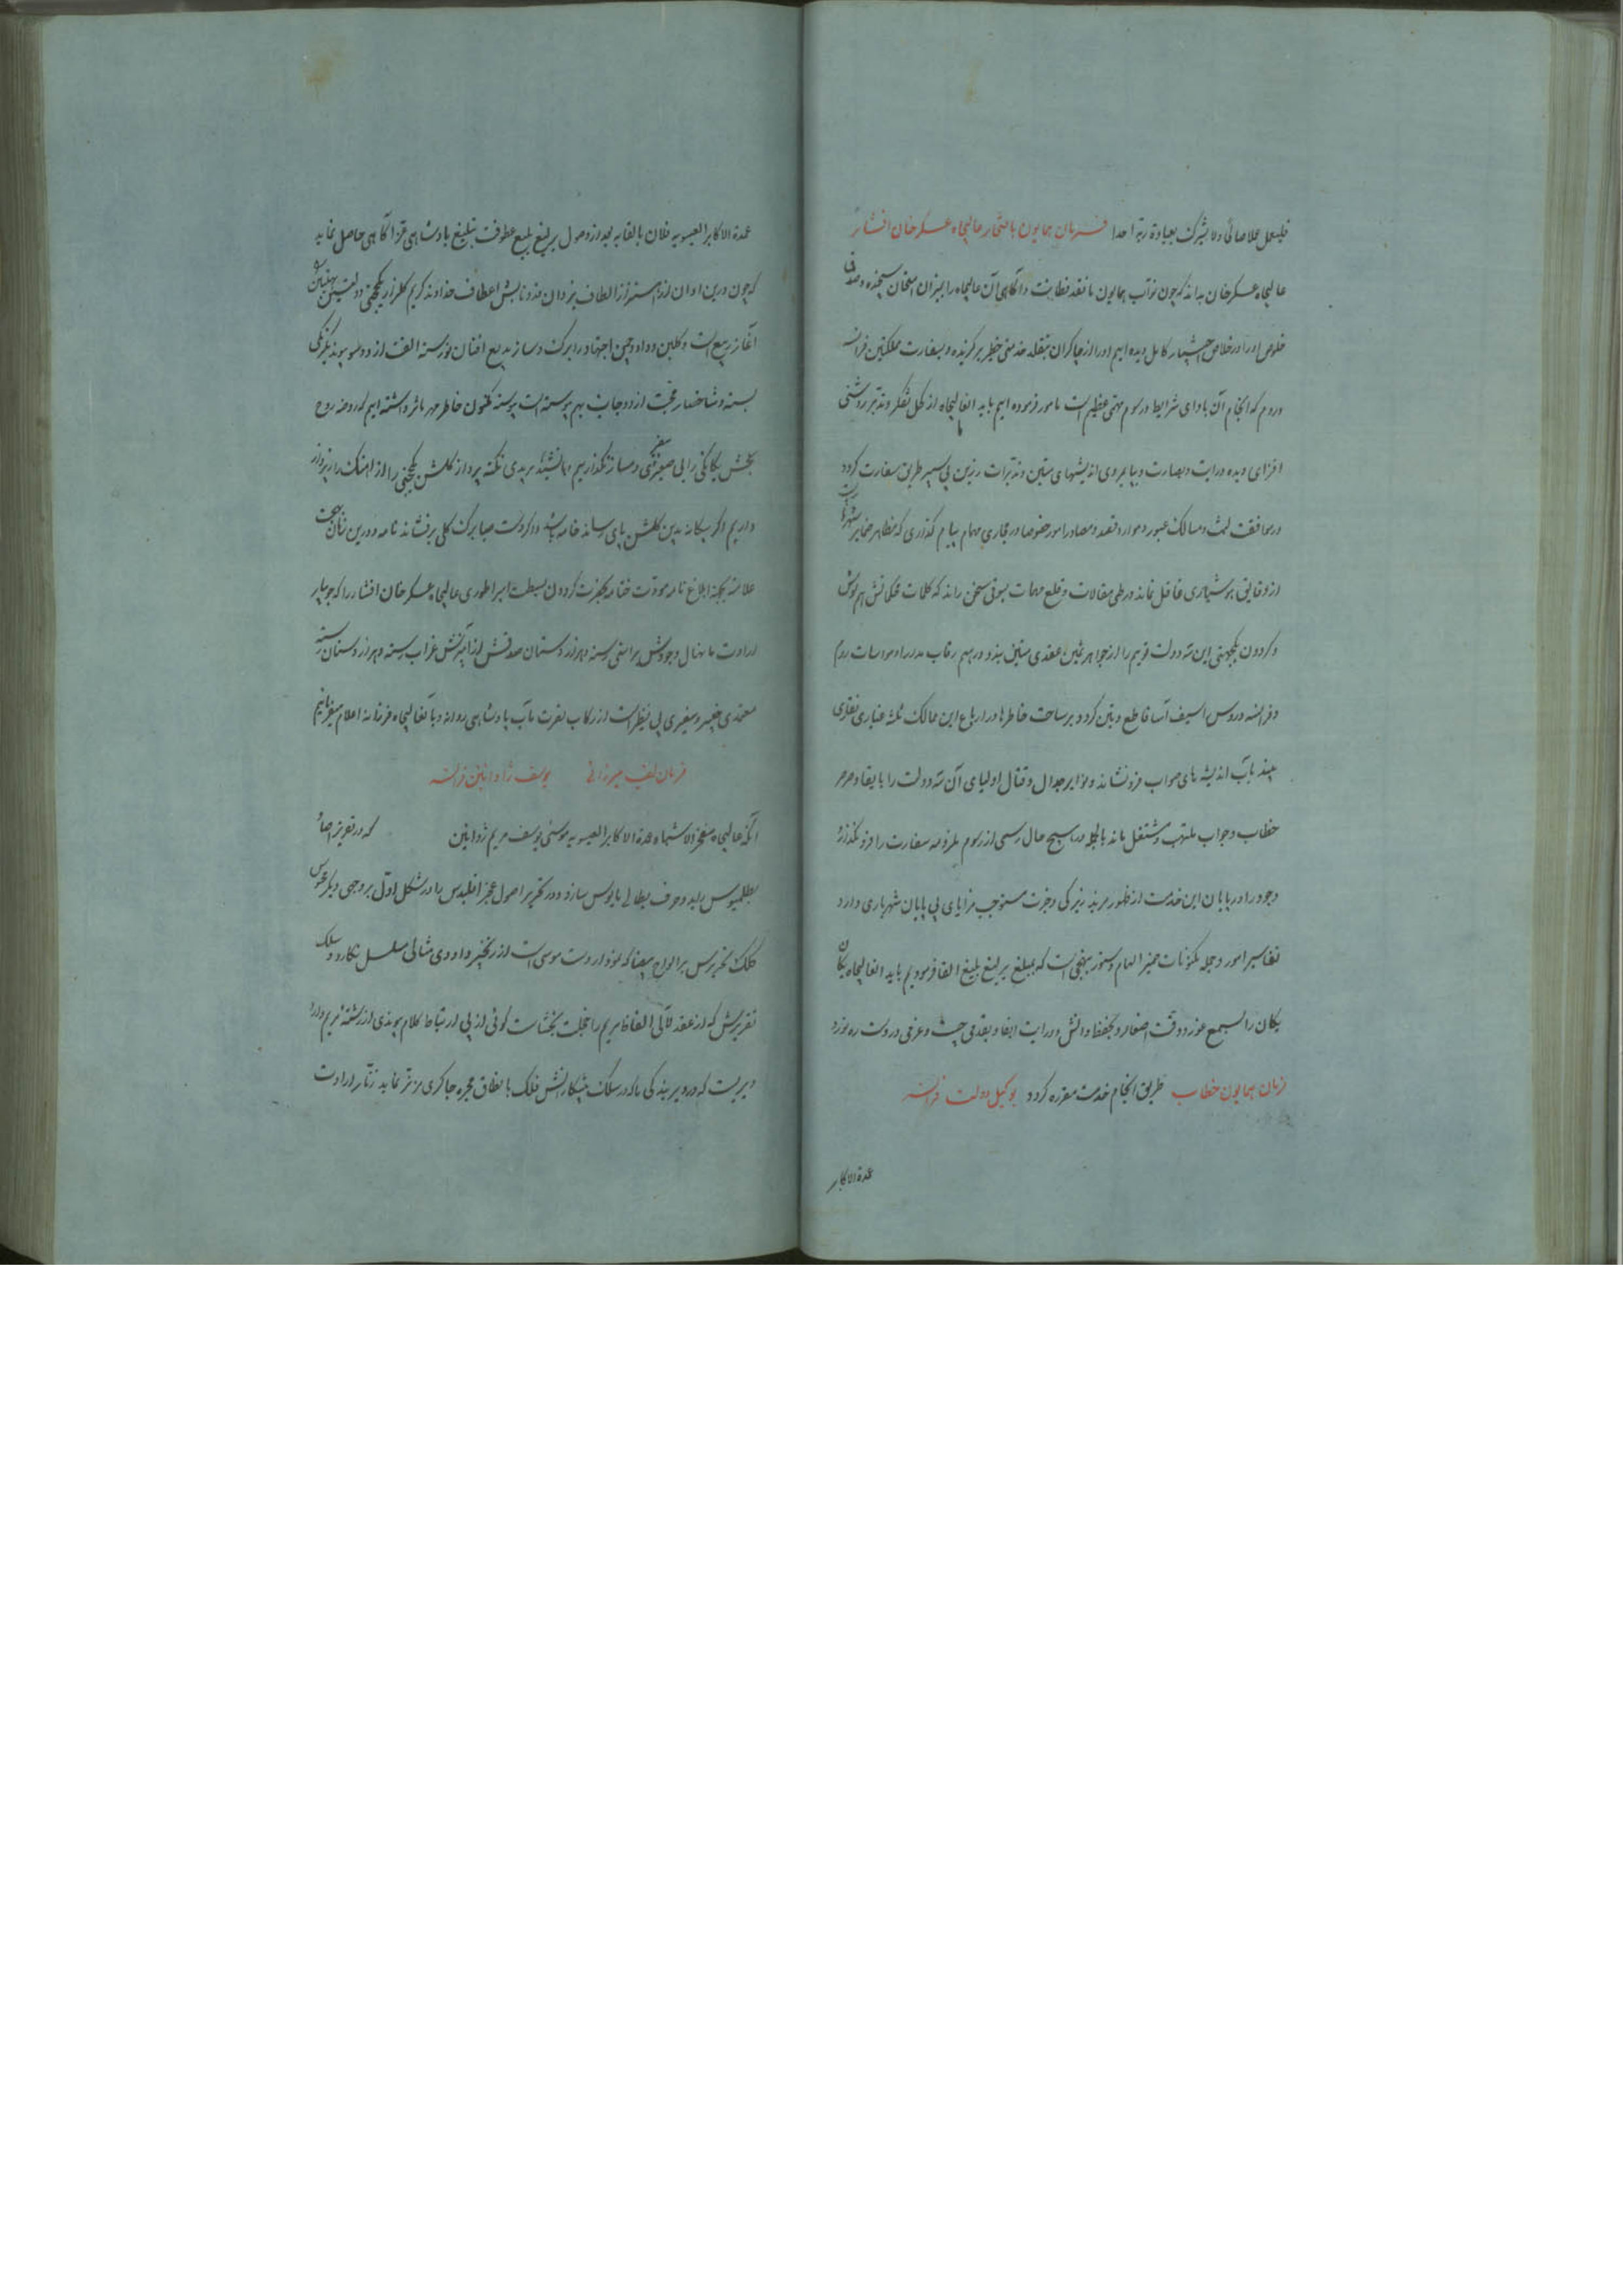 فلیعمل عملا صالحا و لا یشرک بعبادة ربه احدا فرمان همایون بافتخار عالیجاه عسکرخان افشار
عالیجاه عسکرخان بداند که چون نواب همایون ما نقد فطانت و آگاهی آن عالیجاه را بمیزان امتحان سنجیده و صدق
خلوص او را در خلاص اختبار کامل دیده ایم او را از چاکران بتقلد خدمتی خطیر برگزیده و بسفارت مملکتین فرانسه
و روم که انجام آن بادای شرایط و رسوم مهمی عظیم است مامور فرموده ایم باید انعالیجاه از کحل تفکر و تدبر روشنی
افزای دیده درایت و بصارت و بپایمردی اندیشهای متین و تدبیرات رزین پی سپر طریق سفارت گردد
در موافقت لیث و مسالک عبور و موارد قصد و مصادر امور خصوصا در مجاری مهام پیام گذاری که مظاهر ضمایر شهریاریست
از دقایق هوشیاری غافل نماند در طی مقالات و قطع مهمات بنوعی سخن راند که کلمات محکماتش هم گوش
و گردون یکجهتی این سه دولت قویم را از جواهر ثمین عقدی متین بندد و رسم رقاب مدارا و مواسات روم
و فرانسه و روس اسیف آسا قاطع و متین گردد بر ساحت خاطرها در ارباع این ممالک ثلثه غباری نقاری
بیند بآب اندیشه های صواب فرو نشاند و نوایر جدال و قتال اولیای آن سه دولت را بایقاد صرصر
خطاب و جواب ملتهب و مشتعل ماند بالجمله در هیچ حال رسمی از رسوم ملزومه سفارت را فرو نگذارد
وجود را در پایان این خدمت از ظهور مزید زیرکی و خبرت مستوجب مزایای بی پایان شهریاری دارد
تفاسیر امور و جمله مکنونات ضمیر الهام دستور بنهجی است که بمبلغ یرلیغ بلیغ القا فرمودیم باید انعالیجاه یکان
یکان را بسمع غور و دقت اصغا و بحفظ دانش و درایت ابقا و بقدمی چست و عزمی درست ره نورد
طریق انجام خدمت مقرره گردد فرمان همایون خطاب بوکیل دولت فرانسه
عمدة الاکابر
عمدة الاکابر العیسویه فلان بالقابه بعد از وصول یرلیغ بلیغ عطوفت بتبلیغ پادشاهی قرا آگاهی حاصل نماید
که چون درین اوان از اهتزاز الطاف یزدان و تابش اعطاف خداوند کریم گلزار یکجهتی دولتین بهیتین را
آغاز ربیع است و گلبن وداد و چمن اجتهاد را برگ و ساز بدیع افنان نورسته الفت از دو سو پیوند یکرنگی
بسته و شاخسار محبت از دو جانب بهم پیوسته است پیوسته مکنون خاطر مهر ماثر داشته ایم که روضه روح
بخش یگانگی را بی صفیر سفیر نکته و ساز نگذاریم و اندیشه بریدی نکته پرداز گلشن یکجهتی را از آهنگ راز پرواز
داریم اگر بیگانه بدین گلشن پای رساند خامه باشد و اگر دست صبا برگ گلی برفشاند نامه و درین زمان بهجت
علامت بجهة ابلاغ نامه مودت ختامه بحضرت گردون بسطت امپراطوری عالیجاه عسکرخان افشار را که جویبار
ارادت ما نهال وجودش براستی رسته و هزار دستان صدقش از آمیزش غراب رسته و هزار دستان رسته
معتمدی خبیر و سفیری بی نظیر است از رکاب نصرت مآب پادشاهی روانه و بآنعالیجاه فرزانه اعلام میفرمائیم
فرمان لقب میرزائی یوسف ژاوانین فرانسه
آنکه عالیجاه مفخر الاشباه عمدة الاکابر العیسویه موسی یوسف مریم ژوانین که در تقویم اصلاح
بطلمیوس رابد و حرف بطالی مایوس سازد و در تحریر اصول عجز اقلیدس را در شکل اول بر وجهی دیگر محسوس
کلک تحریرش بر الواح بیضا که نمودار دست موسی است از زنجیر داودی مثالی مسلسل نگارد و سلک
تقریرش که از عقد لآلی الفاظ مریم را خجلت بخشاست گوئی از پی ارتباط کلام پیوندی از رشته مریم دارد
دیریست که در دیر بندگی ما که در سلک پیشکارانش فلک با نطاق مجره چاکری مزنر نماید زنار ارادت